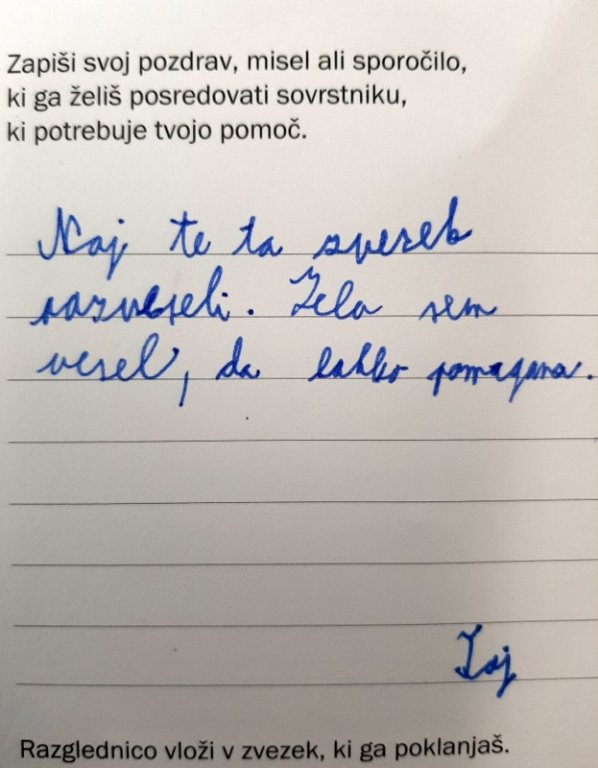 Zapiši svoj pozdrav, misel ali sporočilo,
ki ga želiš posredovati sovrstniku,
ki potrebuje tvojo pomoč.
Naj te ta zvezek
razveseli. Zelo sem
vesel, da lahko pomagam.
Razglednico vloži v zvezek, ki ga poklanjaš.